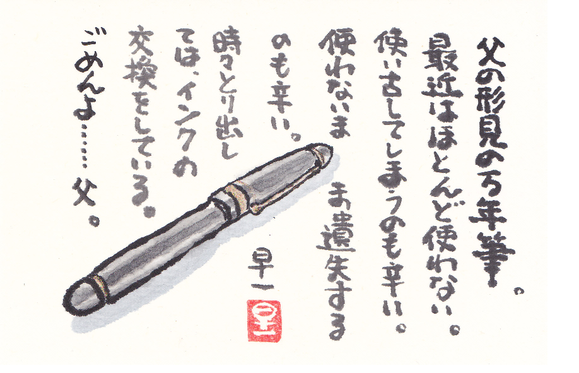 父の形見の万年筆。
最近はほとんど使わない。
使い古してしまうのも辛い。
使わないまま遺失する
のも辛い。
時々とり出し
ては、インクの
交換をしている。
ごめんよ……父。
早一
早一